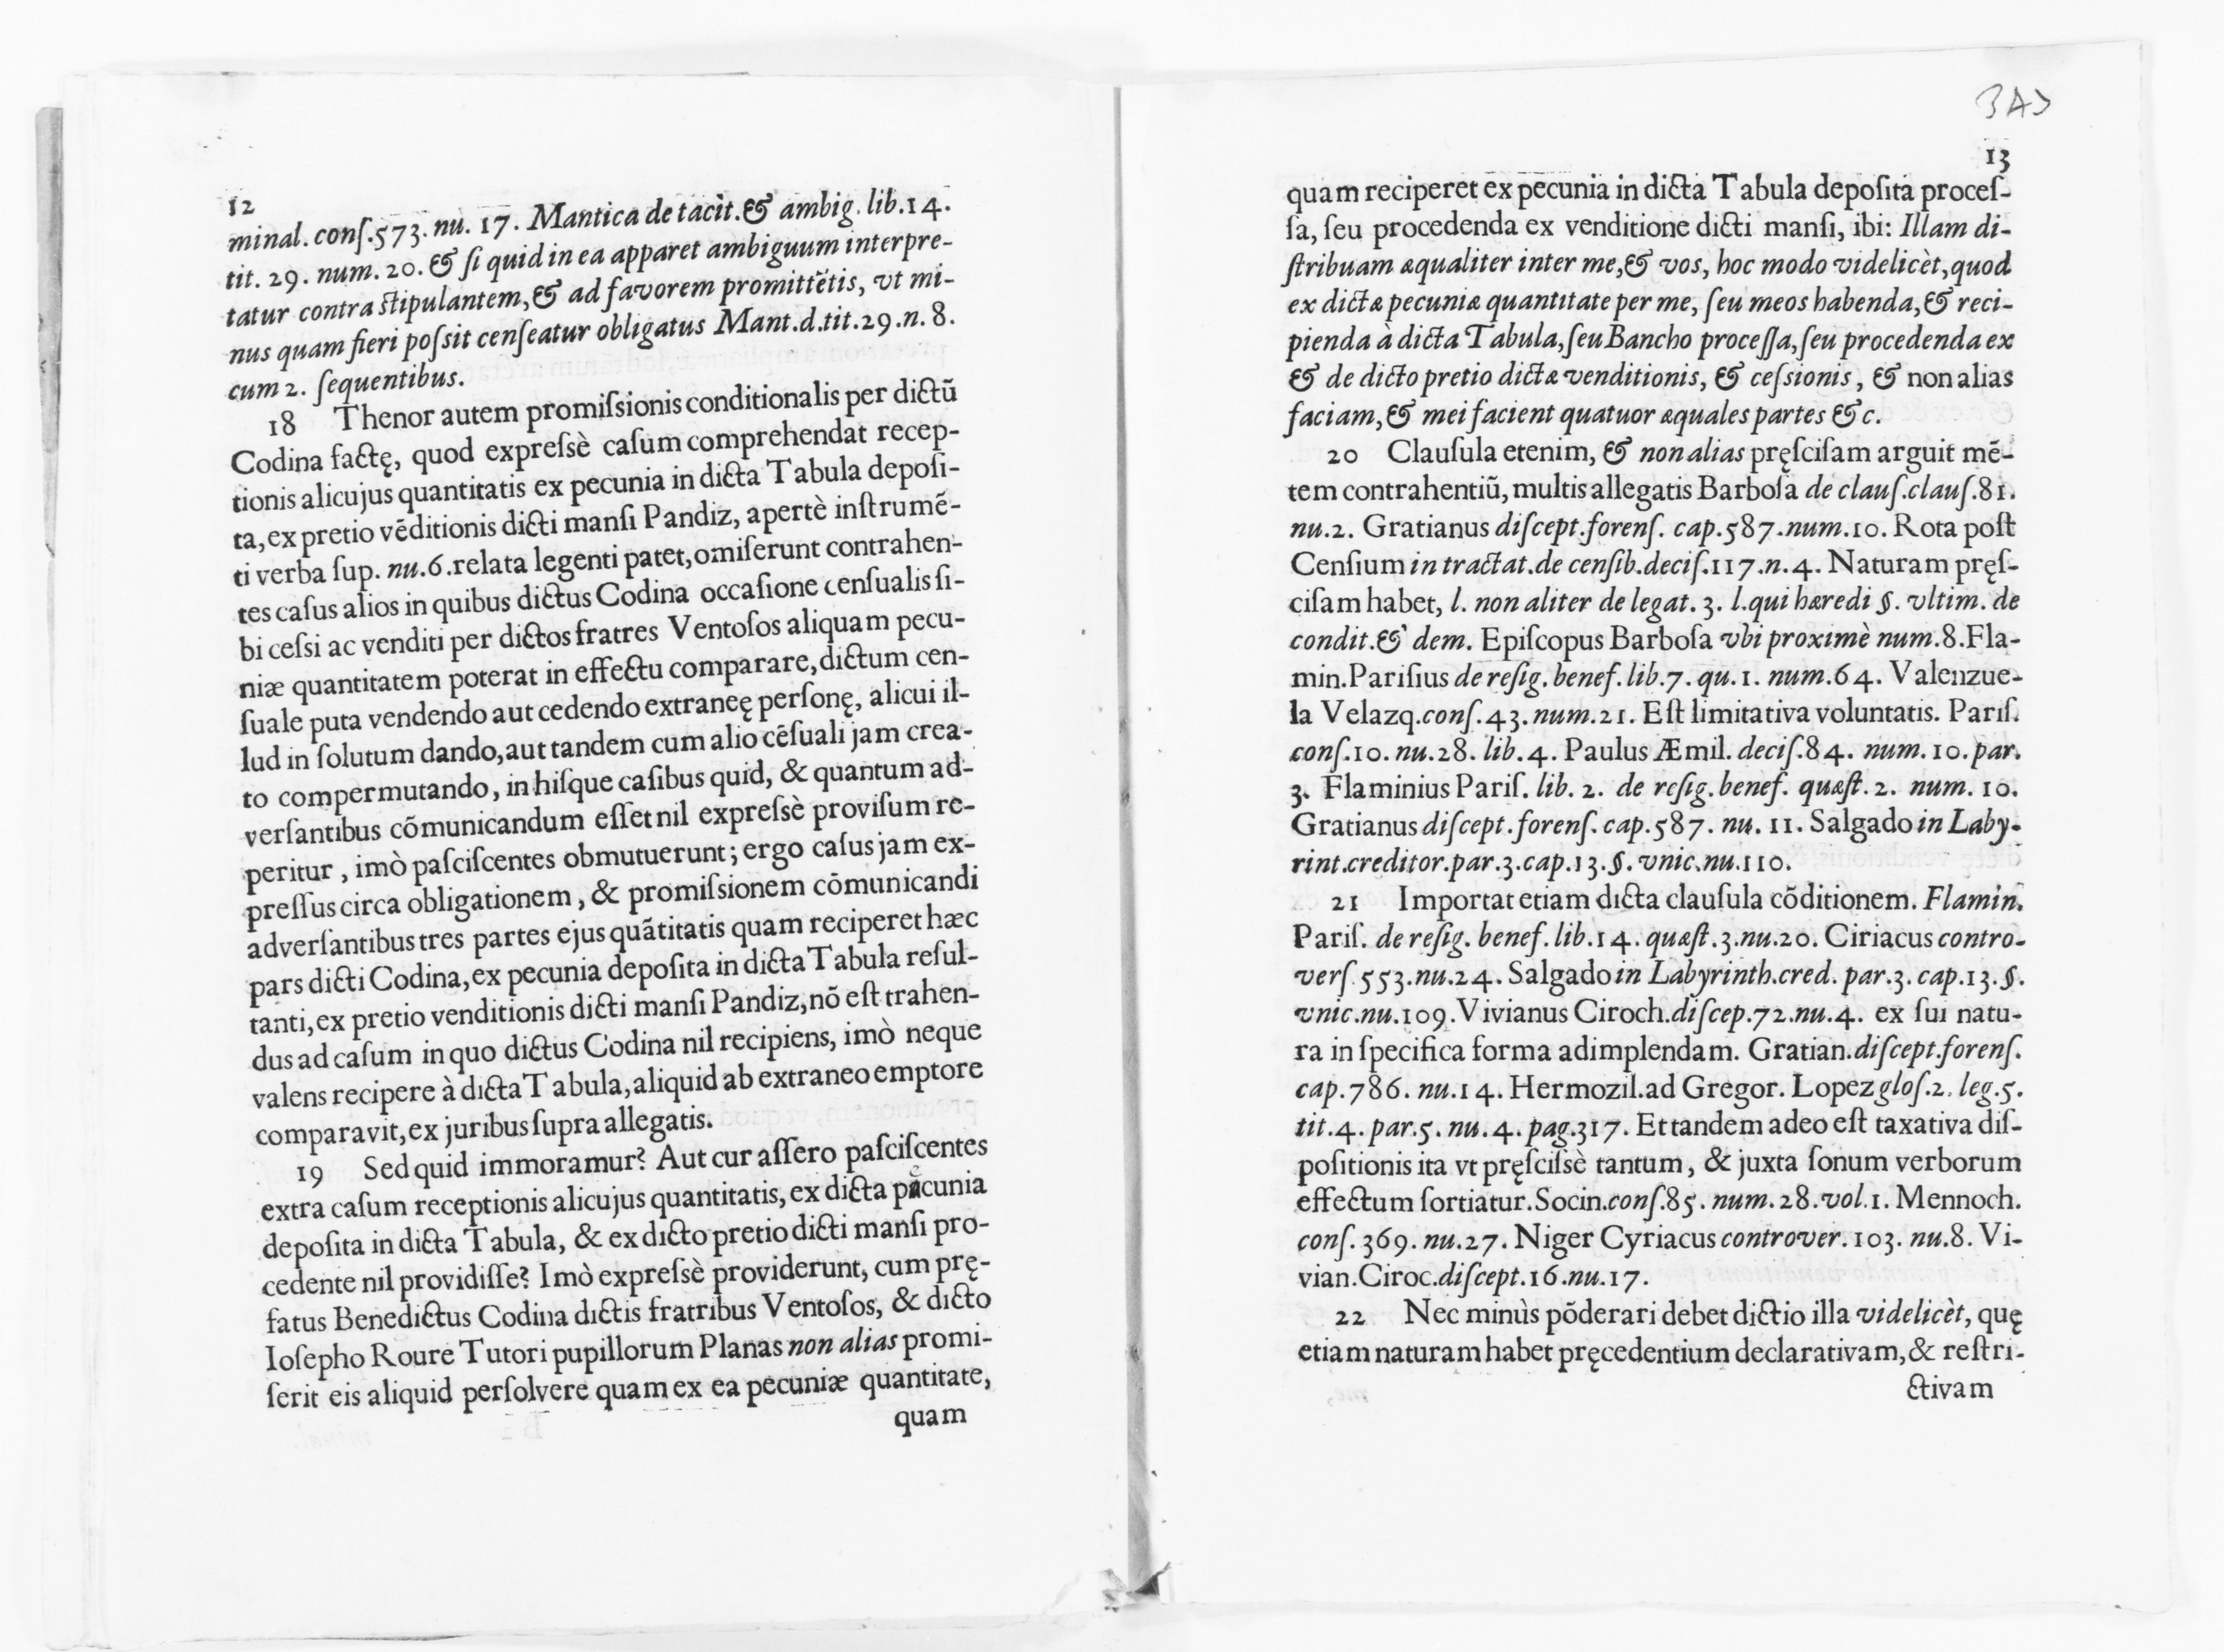 12
minal. conſ.573. nu. 17. Mantica de tacit.& ambig. lib.14.
tit. 29. num. 20. & ſi quid in ea apparet ambiguum interpre-
tatur contra ſtipulantem,& ad favorem promittẽtis, vt mi-
nus quam fieri poſsit cenſeatur obligatus Mant.d.tit.29.n. 8.
cum 2. ſequentibus.
18 Thenor autem promiſsionis conditionalis per dictũ
Codina factę, quod expreſsè caſum comprehendat recep-
tionis alicujus quantitatis ex pecunia in dicta Tabula depoſi-
ta, ex pretio vẽditionis dicti manſi Pandiz, apertè inſtrumẽ-
ti verba ſup. nu.6.relata legenti patet, omiſerunt contrahen-
tes caſus alios in quibus dictus Codina occaſione cenſualis ſi-
bi ceſsi ac venditi per dictos fratres Ventoſos aliquam pecu-
niæ quantitatem poterat in effectu comparare, dictum cen-
ſuale puta vendendo aut cedendo extraneę perſonę, alicui il-
lud in ſolutum dando, aut tandem cum alio cẽſuali jam crea-
to compermutando, in hiſque caſibus quid, & quantum ad-
verſantibus cõmunicandum eſſet nil expreſsè proviſum re-
peritur, imò paſciſcentes obmutuerunt; ergo caſus jam ex-
preſſus circa obligationem, & promiſsionem cõmunicandi
adverſantibus tres partes ejus quãtitatis quam reciperet hæc
pars dicti Codina, ex pecunia depoſita in dicta Tabula reſul-
tanti, ex pretio venditionis dicti manſi Pandiz, nõ eſt trahen-
dus ad caſum in quo dictus Codina nil recipiens, imò neque
valens recipere à dicta Tabula, aliquid ab extraneo emptore
comparavit, ex juribus ſupra allegatis.
19 Sed quid immoramur? Aut cur aſſero paſciſcentes
extra caſum receptionis alicujus quantitatis, ex dicta pecunia
depoſita in dicta Tabula, & ex dicto pretio dicti manſi pro-
cedente nil providiſſe? Imò expreſsè providerunt, cum prę-
fatus Benedictus Codina dictis fratribus Ventoſos, & dicto
Ioſepho Roure Tutori pupillorum Planas non alias promi-
ſerit eis aliquid perſolvere quam ex ea pecuniæ quantitate,
quam
13
quam reciperet ex pecunia in dicta Tabula depoſita proceſ-
ſa, ſeu procedenda ex venditione dicti manſi, ibi: Illam di-
ſtribuam æqualiter inter me,& vos, hoc modo videlicèt, quod
ex dictæ pecuniæ quantitate per me, ſeu meos habenda,& reci-
pienda à dicta Tabula, ſeu Bancho proceſſa, ſeu procedenda ex
& de dicto pretio dictæ venditionis, & ceſsionis, & non alias
faciam,& mei facient quatuor æquales partes &c.
20 Clauſula etenim, & non alias pręſciſam arguit mẽ-
tem contrahentiũ, multis allegatis Barboſa de clauſ.clauſ.81.
nu.2. Gratianus diſcept.forenſ. cap.587.num.10. Rota poſt
Cenſium in tractat.de cenſib.deciſ.117.n.4. Naturam pręſ-
ciſam habet, l. non aliter de legat. 3. l.qui hæredi §. vltim. de
condit.& dem. Epiſcopus Barboſa vbi proximè num.8.Fla-
min.Pariſius de reſig. benef. lib.7. qu.1. num.64. Valenzue-
la Velazq.conſ.43.num.21. Eſt limitativa voluntatis. Pariſ.
conſ.10. nu.28. lib.4. Paulus Æmil. deciſ.84. num.10.par.
3. Flaminius Pariſ. lib. 2. de reſig. benef. quæſt.2. num. 10.
Gratianus diſcept.forenſ.cap.587. nu. 11. Salgado in Laby-
rint.creditor.par.3.cap.13.§.vnic.nu.110.
21 Importat etiam dicta clauſula cõditionem. Flamin.
Pariſ. de reſig. benef. lib.14. quæſt.3.nu.20. Ciriacus contro-
verſ.553.nu.24. Salgado in Labyrinth.cred. par.3. cap.13.§.
vnic.nu.109.Vivianus Ciroch.diſcep.72.nu.4. ex ſui natu-
ra in ſpecifica forma adimplendam. Gratian.diſcept.forenſ.
cap.786. nu.14. Hermozil.ad Gregor. Lopez gloſ.2. leg.5.
tit.4. par.5. nu.4. pag.317. Et tandem adeo eſt taxativa diſ-
poſitionis ita vt pręſciſsè tantum, & juxta ſonum verborum
effectum ſortiatur.Socin.conſ.85. num.28.vol.1. Mennoch.
conſ.369. nu.27. Niger Cyriacus controver.103. nu.8. Vi-
vian.Ciroc.diſcept.16.nu.17.
22 Nec minùs põderari debet dictio illa videlicèt, quę
etiam naturam habet pręcedentium declarativam,& reſtri-
ctivam